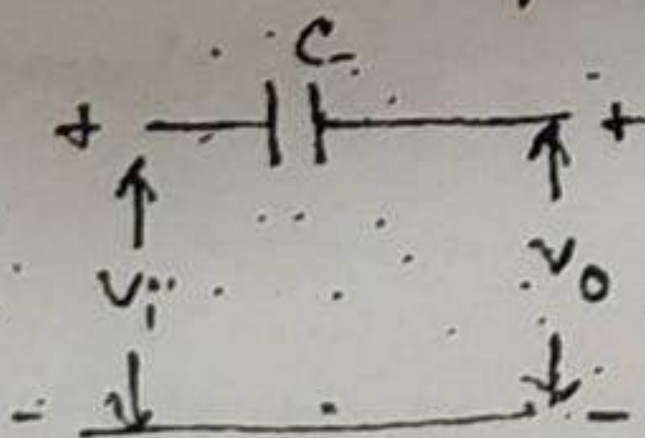 C
+ +
Vi Vo
- -